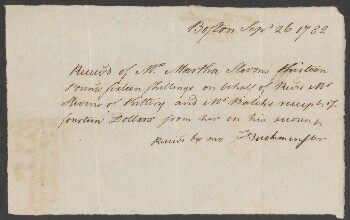 Boston Sepr 26 1782
Receiv'd of Mrs Martha Stevens thirteen
Pounds sixteen shillings on behalf of Revd Mr
Stevens of Kittery and Mr Balchs receipt of
fourteen Dollars from her on his account
Receiv'd by me J Buckminster